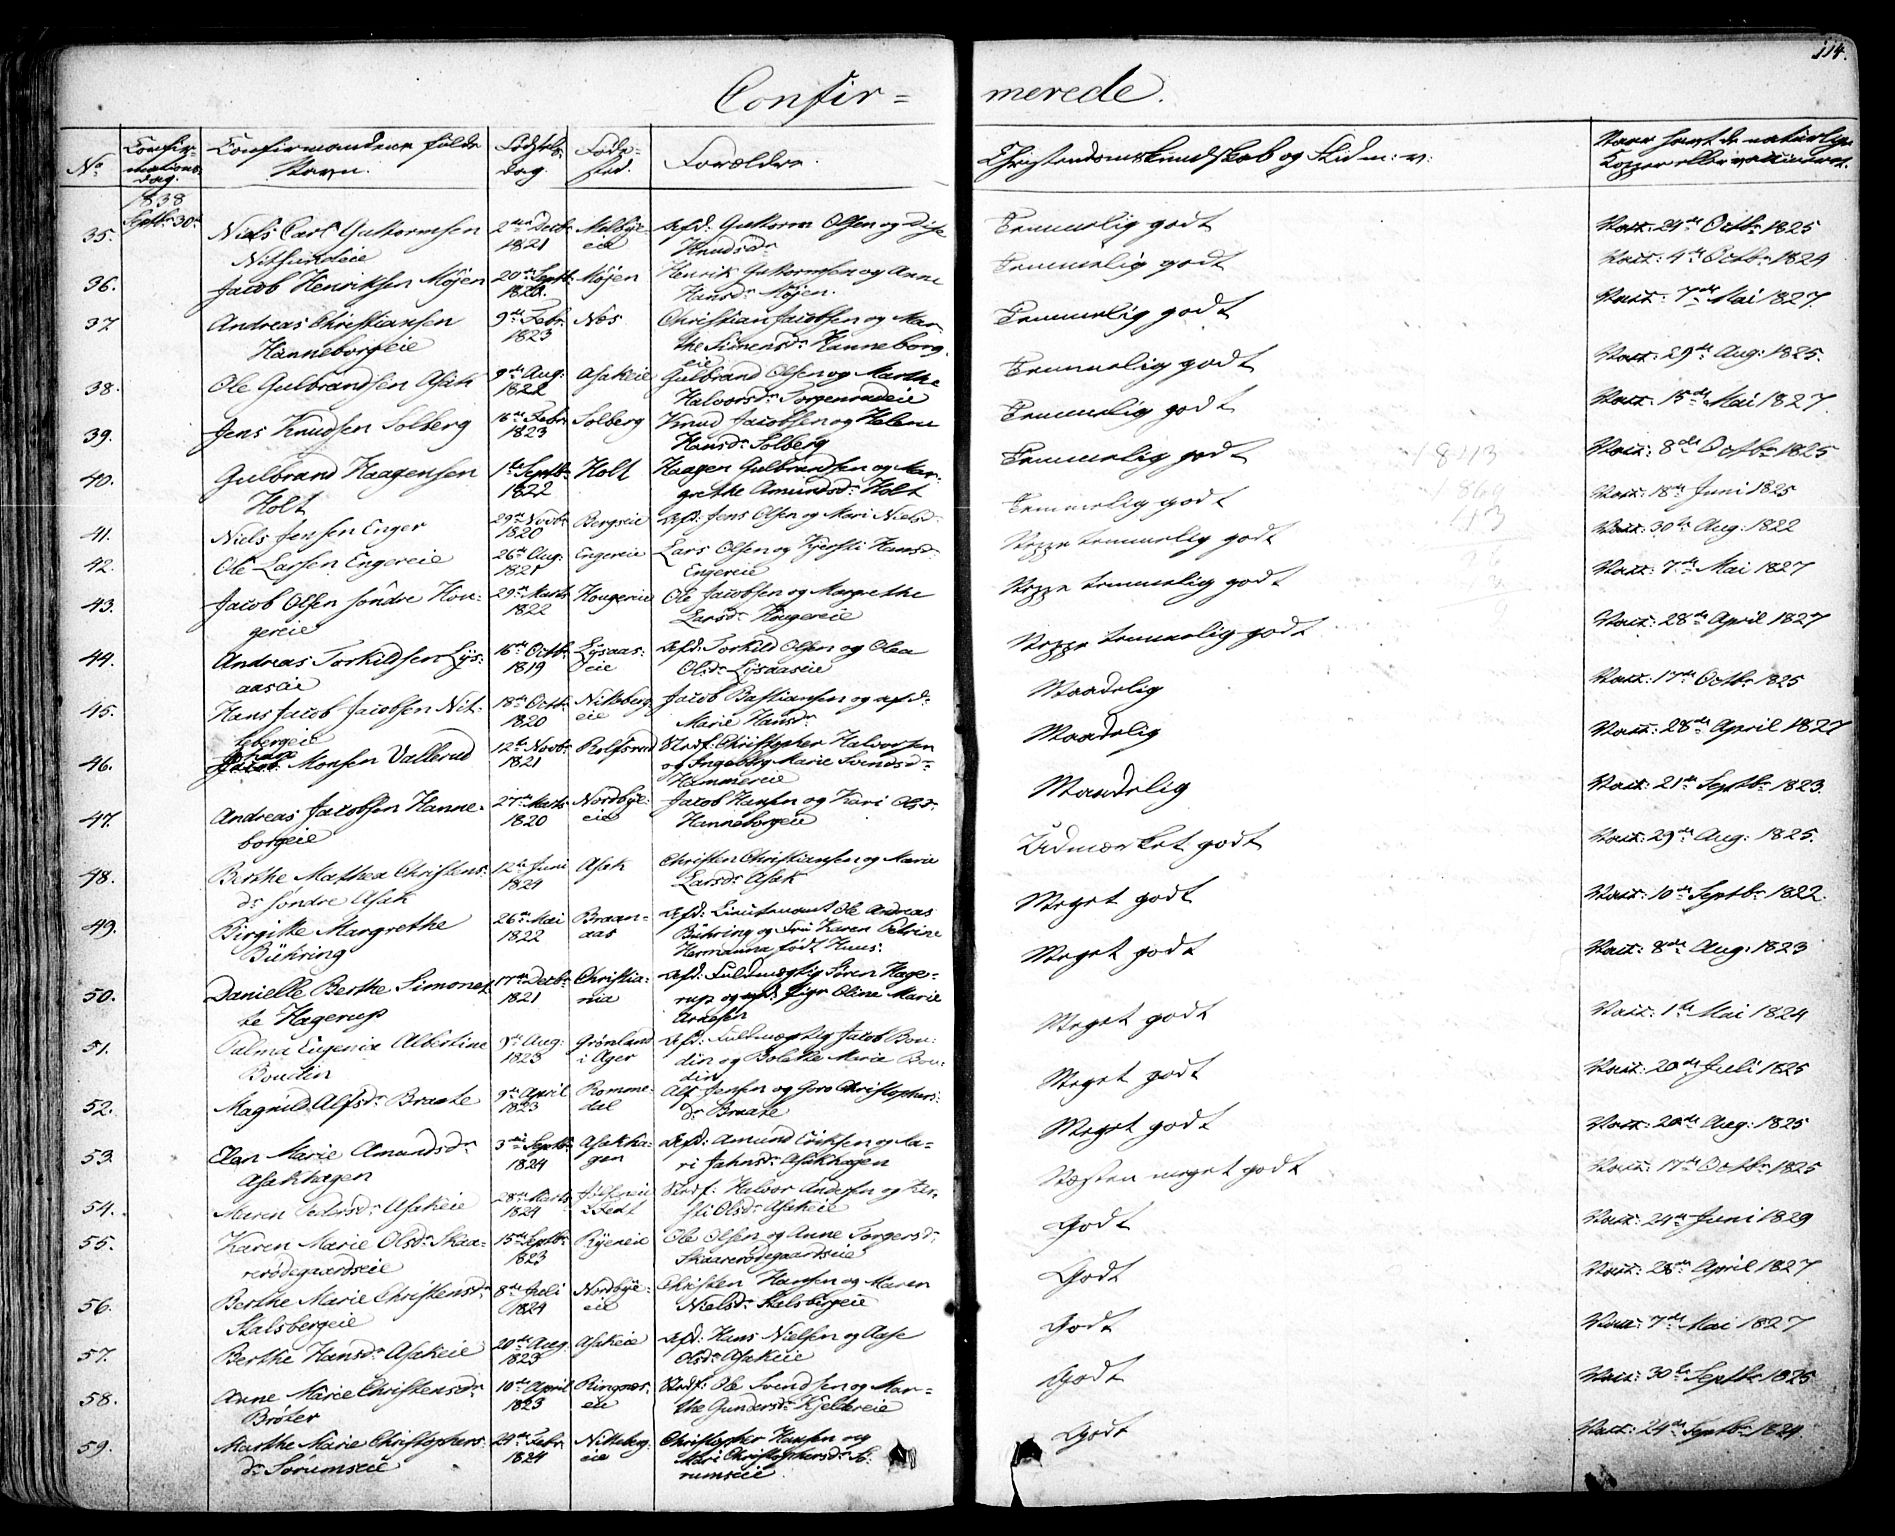 114.
Confir= merede.
No
Confir-
mations
dag.
Confirmandens fulde
Navn.
Fødsels
dag.
Føde-
sted.
Forældre.
Christendomskundskab og Flid m: v:
Naar havt de naturlige
Kopper eller vaccineret.
1838
Septbr 30te
35. Niels Carl Guttormsen
Nitsundeie
2den Decbr
1821
Melbye
eie
Afd: Guttorm Olsen og
Knudsdr
Temmelig godt
Vacc: 24de Octbr 1825
36. Jacob Henriksen Möjen
20de Septbr
1820.
Möjen
Henrik Guttormsen og Anne
Hansdr Möjen.
Temmelig godt
Vacc: 4de Octbr 1824
37. Andreas Christiansen
Hanneborgeie
9de Febr:
1823
Nes
Christian Jacobsen og Mar
the Simensdr Hanneborg
eie
Temmelig godt
Vacc: 7de Mai 1827.
38. Ole Gulbrandsen Asak
9de Aug:
1822
Asakeie
Gulbrand Olsen og Marthe
Halvorsdr Sorgenradeie
Temmelig godt
Vacc: 29de Aug: 1825.
39. Jens Knudsen Solberg
16de Febr:
1823
Solberg
Knud Jacobsen og Helene
Hansdr Solberg
Temmelig godt
Vacc: 15de Mai 1827.
40. Gulbrand Haagensen
Holt
1ste Septbr
1822
Holt
Haagen Gulbrandsen og Mar-
grethe Amundsdr Holt
Temmelig godt
Vacc: 8de Octbr 1825
41. Niels Jensen Enger
29de Novbr
1820
Bergseie
Afd: Jens Olsen og Mari Nielsd:
Temmelig godt
Vacc: 18de Juni 1825
42. Ole Larsen Engereie
26de Aug:
1821
Engereie
Lars Olsen og Kjersti Hansd:
Engereie
Neppe temmelig godt
Vacc: 30te Aug: 1822
43. Jacob Olsen søndre Hou-
gereie
29de Marts
1822
Hougereie
Ole Jacobsen og Margrethe
Larsdr Hougereie
Neppe temmelig godt
Vacc: 7de Mai 1827
44. Andreas Torkildsen Lys-
aaseie
16de Octbr
1819
Lysaas-
eie
Afd: Torkild Olsen og Olea
Olsdr Lysaaseie
Neppe temmelig godt
Vacc: 28de April 1827
45. Hans Jacob Jacobsen Nit-
tebergeie
18de Octbr
1820
Nitteberg
eie
Jacob Bastiansen og afd:
Marie Hansdr
Maadelig
Vacc: 17de Octbr 1825
46. Jacob Monsen Vallerud
12te Novbr
1821
Rolfsrud
Stedf: Christopher Halvorsen
og Ingeborg Marie Svendsdr
Hammereie
Maadelig
Vacc: 28de April 1827
47. Andreas Jacobsen Hanne-
borgeie
27de Marts
1820
Nordbye-
eie
Jacob Hansen og Kari Olsd:
Hanneborgeie
Maadelig
Vacc: 21de Septbr 1823.
48. Berthe Mathea Christens-
dr søndre Asak
12te Juni
1824
Asak
Christen Christiansen og Marie
Larsdr Asak
Udmærket godt
Vacc: 29de Aug: 1825.
49. Birgitte Margrethe
Bühring
26de Mai
1822
Braan-
aas
Afd: Lieutenant Ole Andreas
Bühring og Fru Karen Petrine
Hermanna født Huus.
Meget godt
Vacc: 10de Septbr 1822.
50. Danielle Berthe Simonet-
te Hagerup
17de Decbr
1821
Christia-
nia
Afd: Fuldmægtig Sören Hage-
rup og Oline Marie
Arnesen
Meget godt
Vacc: 8de Aug: 1823
51. Palma Eugenia Albertine
Boudin
9de Aug:
1823
Grönland
i Ager
Afd: Fuldmægtig Jacob Bou-
din og Bolette Marie Bou-
din
Meget godt
Vacc: 1ste Mai 1824
52. Magnild Alfsdr Braate
9de April
1823
Romme-
dal
Alf Jensen og Goro Christophers-
dr Braate
Meget godt
Vacc: 20de Juli 1825
53. Elen Marie Amundsdr
Asakhagen
3die Septbr
1824
Asakha-
gen
Afd: Amund Eriksen og Ka-
ri Jahnsdr Asakhagen
Meget godt
Vacc: 20de Aug: 1825
54. Maren Pedersdr Asakeie
28de Marts
1824
Stedf: Halvor Andersen og Ker-
sti Olsdr Asakeie
Næsten meget godt
Vacc: 17de Octbr 1825
55. Karen Marie Olsdr Skaa-
rerødegaardseie
15de Septbr
1823
Ryeneie
Ole Olsen og Anne Torgersdr
Skaarerødegaardseie
Godt
Vacc: 24de Juni 1829
56. Berthe Marie Christensdr
Stalsbergeie
8de Juli
1824
Nordbye-
eie
Christen Hansen og Maren
Nielsdr Stalsbergeie
Godt
Vacc: 28de April 1827
57. Berthe Hansdr Asakeie
20de Aug
1823
Asakeie
Afd: Hans Nielsen og Aase
Olsdr Asakeie
Godt
Vacc: 7de Mai 1827
58. Anne Marie Christensdr
Bröter
10de April
1823
Ringnes-
eie
Stedf: Ole Svendsen og Mar-
the Gundersdr Kjeldereie
Godt
Vacc: 30te Septbr 1825
59. Marthe Marie Christophers-
dr Sörumseie
24de Febr
1824
Nitteberg
eie
Christopher Hansen og
Mari Christophersdr Sö-
rumseie
Godt
Vacc: 24de Septbr 1824